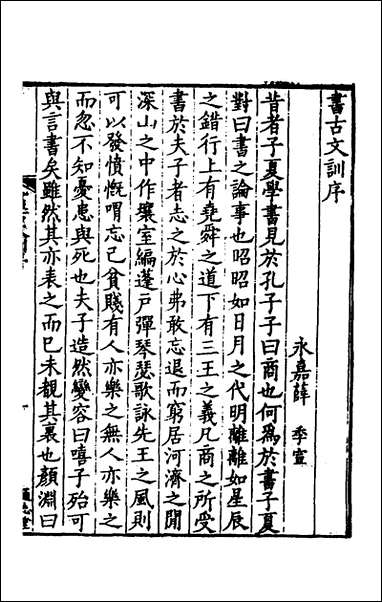 書古文訓序
永嘉薛　季宣
昔者子夏學書見於孔子子曰商也何為於書子夏
對曰書之論事也昭昭如日月之代明離離如星辰
之錯行上有堯舜之道下有三王之義凡商之所受
書於夫子者志之於心弗敢忘退而窮居河濟之間
深山之中作壤室編蓬戶彈琴瑟歌詠先王之風則
可以發憤慨喟忘己貧賤有人亦樂之無人亦樂之
而忽不知憂患與死也夫子造然變容曰嘻子殆可
與言書矣雖然其亦表之而已未覩其裏也顏淵曰
通志堂